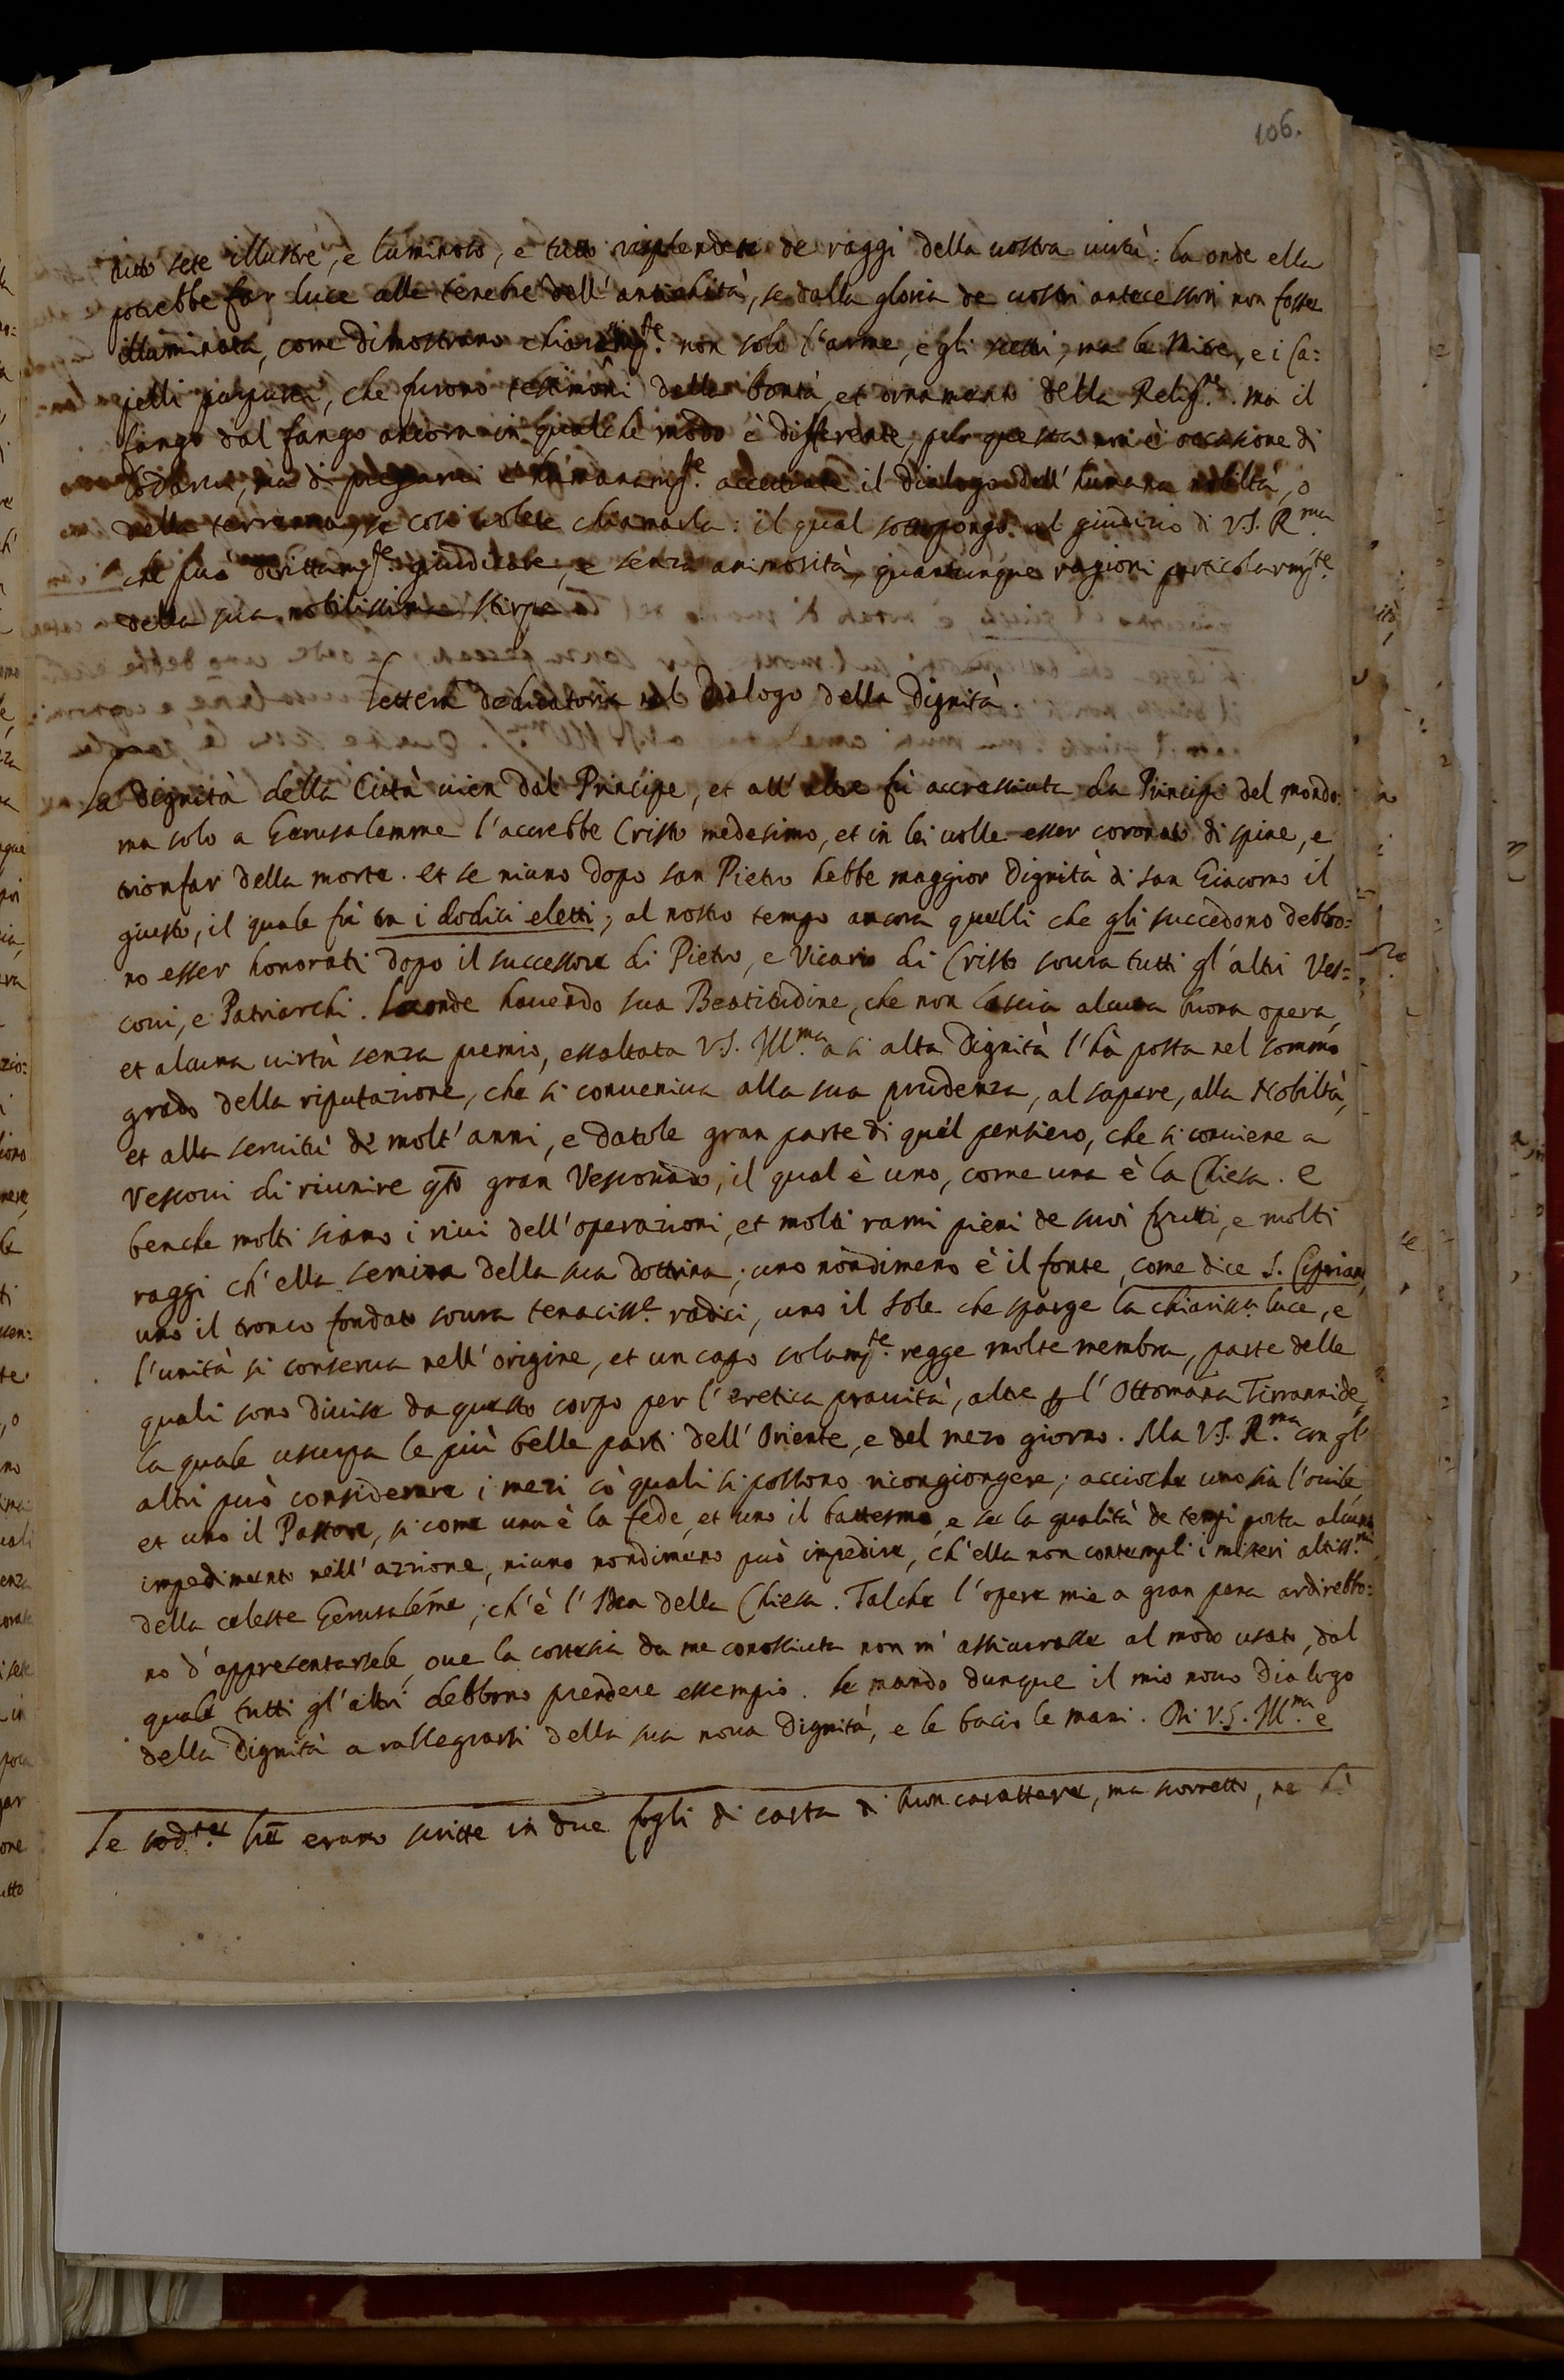 106.
tutto sete illustre, e luminoso, e tutto risplendete de raggi della vostra virtù: la onde ella
potrebbe far luce alle tenebre dell'antichità, se dalla gloria de vostri antecessori non fosse
illuminata, come dimostrano non solo l'arme, e gli scettri, ma le Mitre, e i Ca:
pelli purpurei, che furono testimoni della bontà, et ornamento della Relig.e ma il
fango dal fango ancora in qualche modo è differente, questa non è occasione di
ma di pregarvi humanam.te accettiate il dialogo dell'humana nobiltà, o
della terrena, se così volete chiamarla: il qual sottopongo al giudizio di V.S. R.ma
che può drittam.te giudicare, e senza animosità, quantunque ragioni particolarm.te
della sua nobilissima stirpe
Lettera dedicatoria nel Dialogo della Dignità.
La Dignità della Città vien dal Principe, et all'altre fù accresciuta da Principi del mondo:
ma solo a Gerusalemme l'accrebbe Cristo medesimo, et in lei volle esser coronato di spine, e
trionfar della morte. et se niuno dopo san Pietro hebbe maggior Dignità di san Giacomo il
giusto, il quale fù tra i dodici eletti; al nostro tempo ancora quelli che gli succedono debbo=
no esser honorati dopo il successore di Pietro, e Vicario di Cristo soura tutti gl'altri Ves=
coui, e Patriarchi. Laonde hauendo sua Beatitudine, che non lascia alcuna buona opera,
et alcuna uirtù senza premio, essaltata V.S. Ill.ma a si alta Dignità l'hà posta nel sommo
grado della riputazione, che si conueniua alla sua prudenza, al sapere, alla Nobiltà,
et alla seruitù di molt'anni, e datole gran parte di quel pensiero, che si conuiene a
Vescoui di riunire gsto gran Vescouado, il qual è uno, come una è la Chiesa. e
benche molti siano i riui dell'operazioni, et molti rami pieni de suoi frutti, e molti
raggi ch'ella semina della sua dottrina; uno nondimeno è il fonte, come dice S. Cipriano,
uno il tronco fondato soura tenaciss.e radici, uno il sole che sparge la chiariss.a luce, e
l'unità si conserua nell'origine, et un capo solam.te regge molte membra, parte delle
quali sono diuise da questo corpo per l'eretica prauità, altre p l'Ottomana Tirannide,
la quale usurpa le più belle parti dell'Oriente, e del mezo giorno. Ma V.S. R.ma con gl'
altri può considerare i mezi cò quali si possono ricongiongere; accioche uno sia l'ouile,
et uno il Pastore, si come una è la fede, et uno il battesmo, e se la qualità de tempi porta alcuno
impedimento nell'azzione, niuno nondimeno può impedire, ch'ella non contempli i misteri altiss.mi
della celeste Gerusalẽme, ch'è l'Idea della Chiesa. Talche l'opere mie a gran pena ardirebbo=
no d'appresentarsele, oue la cortesia da me conosciuta non m'assicurasse al modo usato, dal
quale tutti gl'altri debbono prendere essempio. le mando dunque il mio nouo Dialogo
della Dignità a rallegrarsi della sua noua Dignità, e le bacio le mani. Di V.S. Ill.ma e
Le sod.tte lre erano scritte in due fogli di carta di buon carattere, ma scorretto, ne